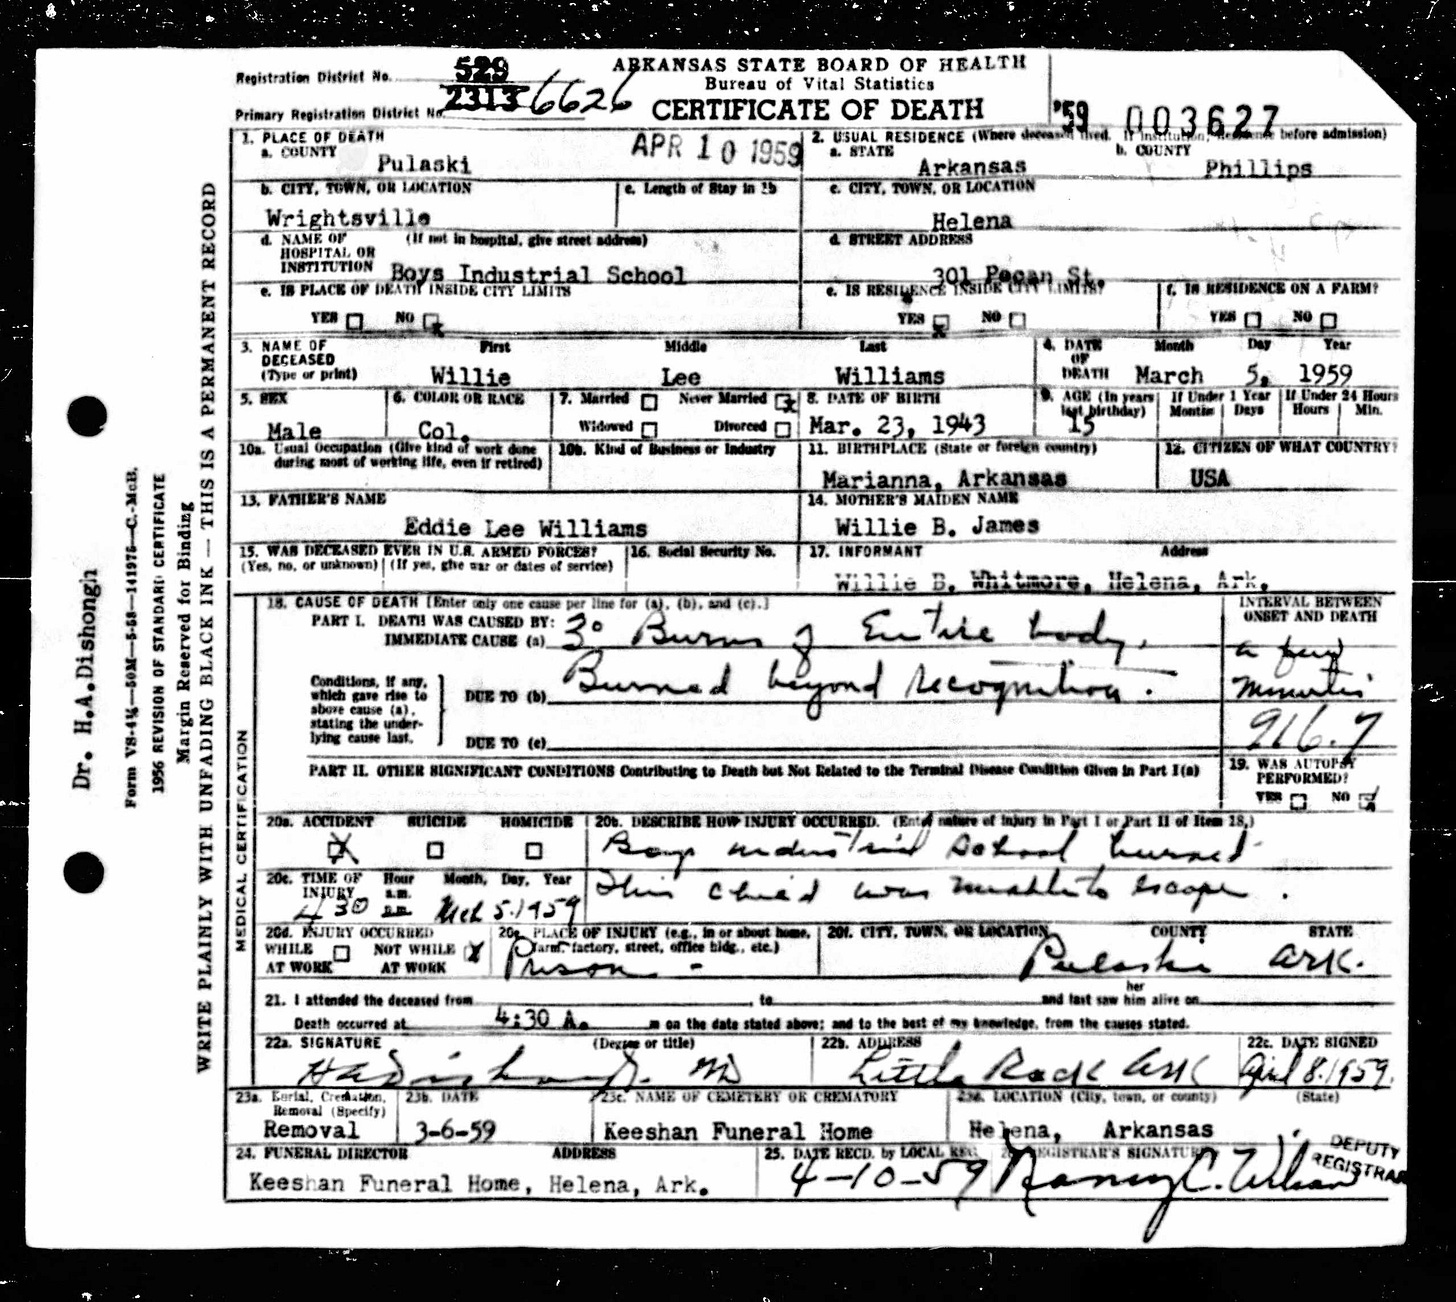 Registration District No. 529
Primary Registration District No. 2313 6626
ARKANSAS STATE BOARD OF HEALTH
Bureau of Vital Statistics
CERTIFICATE OF DEATH
'59 003627
APR 10 1959
1. PLACE OF DEATH
a. COUNTY
Pulaski
2. USUAL RESIDENCE (Where deceased lived. If institution, Residence before admission)
a. STATE b. COUNTY
Arkansas Phillips
b. CITY, TOWN, OR LOCATION c. Length of Stay in 1b
Wrightsville
c. CITY, TOWN, OR LOCATION
Helena
d. NAME OF HOSPITAL OR INSTITUTION (If not in hospital, give street address)
Boys Industrial School
d. STREET ADDRESS
301 Pecan St.
e. IS PLACE OF DEATH INSIDE CITY LIMITS
YES NO x
e. IS RESIDENCE INSIDE CITY LIMITS?
YES x NO
f. IS RESIDENCE ON A FARM?
YES NO
3. NAME OF DECEASED (Type or print) First Middle Last
Willie Lee Williams
4. DATE OF DEATH Month Day Year
March 5, 1959
5. SEX
Male
6. COLOR OR RACE
Col.
7. Married Never Married x
Widowed Divorced
8. DATE OF BIRTH
Mar. 23, 1943
9. AGE (In years last birthday) If Under 1 Year If Under 24 Hours
15 Months Days Hours Min.
10a. Usual Occupation (Give kind of work done during most of working life, even if retired)
10b. Kind of Business or Industry
11. BIRTHPLACE (State or foreign country)
Marianna, Arkansas
12. CITIZEN OF WHAT COUNTRY?
USA
13. FATHER'S NAME
Eddie Lee Williams
14. MOTHER'S MAIDEN NAME
Willie B. James
15. WAS DECEASED EVER IN U.S. ARMED FORCES?
(Yes, no, or unknown) (If yes, give war or dates of service)
16. Social Security No.
17. INFORMANT Address
Willie B. Whitmore, Helena, Ark.
18. CAUSE OF DEATH [Enter only one cause per line for (a), (b), and (c).]
INTERVAL BETWEEN ONSET AND DEATH
PART I. DEATH WAS CAUSED BY:
IMMEDIATE CAUSE (a) 3° Burns of Entire body,
a few minutes
Conditions, if any, which gave rise to above cause (a), stating the underlying cause last.
DUE TO (b) Burned beyond recognition.
DUE TO (c)
916.7
PART II. OTHER SIGNIFICANT CONDITIONS Contributing to Death but Not Related to the Terminal Disease Condition Given in Part I(a)
19. WAS AUTOPSY PERFORMED?
YES NO
20a. ACCIDENT SUICIDE HOMICIDE
X
20b. DESCRIBE HOW INJURY OCCURRED. (Enter nature of injury in Part I or Part II of Item 18.)
Boys industrial School burned
This child was unable to escape.
20c. TIME OF INJURY Hour a.m. p.m. Month, Day, Year
4 30 Mch 5. 1959
20d. INJURY OCCURRED
WHILE AT WORK NOT WHILE AT WORK X
20e. PLACE OF INJURY (e.g., in or about home, farm, factory, street, office bldg., etc.)
Prison -
20f. CITY, TOWN, OR LOCATION COUNTY STATE
Pulaski Ark.
21. I attended the deceased from to and last saw her him alive on
Death occurred at 4:30 A. m on the date stated above; and to the best of my knowledge, from the causes stated.
22a. SIGNATURE (Degree or title)
H A Dishongh. MD
22b. ADDRESS
Little Rock Ark
22c. DATE SIGNED
April 8. 1959.
23a. Burial, Cremation, Removal (Specify)
Removal
23b. DATE
3-6-59
23c. NAME OF CEMETERY OR CREMATORY
Keeshan Funeral Home
23d. LOCATION (City, town, or county) (State)
Helena, Arkansas
24. FUNERAL DIRECTOR ADDRESS
Keeshan Funeral Home, Helena, Ark.
25. DATE RECD. by LOCAL REG.
4-10-59
REGISTRAR'S SIGNATURE
Nancy C. Wilson
DEPUTY REGISTRAR
MEDICAL CERTIFICATION
WRITE PLAINLY WITH UNFADING BLACK INK — THIS IS A PERMANENT RECORD
Margin Reserved for Binding
1956 REVISION OF STANDARD CERTIFICATE
Form VS-4½—50M—5-58—141975—C.-McB.
Dr. H.A.Dishongh